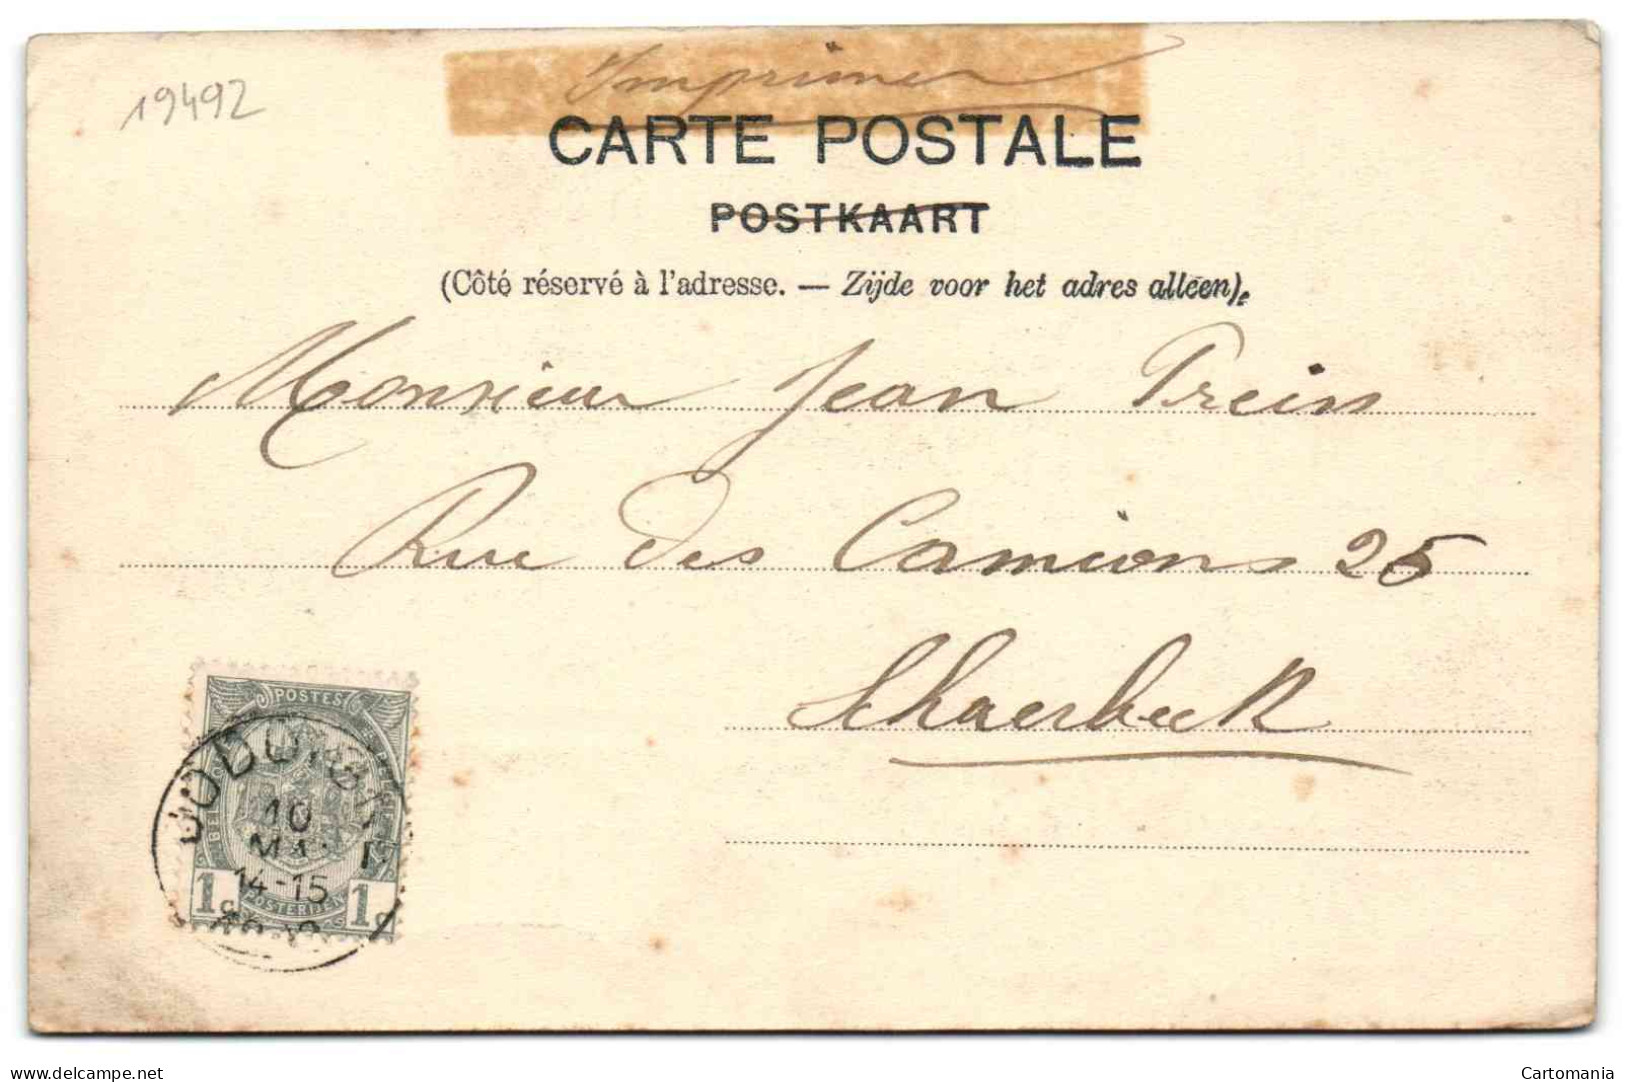 19492
Imprimer
CARTE POSTALE
POSTKAART
(Côté réservé à l'adresse. — Zijde voor het adres alléen).
Monsieur Jean Prein
Rue des Camions 25
Schaerbeck
POSTES
10
14-15
1c
POSTERIJEN
1c
www.delcampe.net
Cartomania